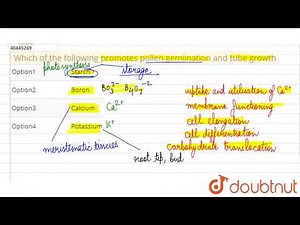 40445269
Which of the following promotes pollen germination and tube growth
photosynthesis
Option1 Starch storage
Option2 Boron BO₃³⁻ B₄O₇⁻²
uptake and utilisation of Ca²⁺
Option3 Calcium Ca²⁺
membrane functioning
cell elongation
Option4 Potassium K⁺
cell differentiation
carbohydrate translocation
meristematic tissues
root tip, bud
doubtnut